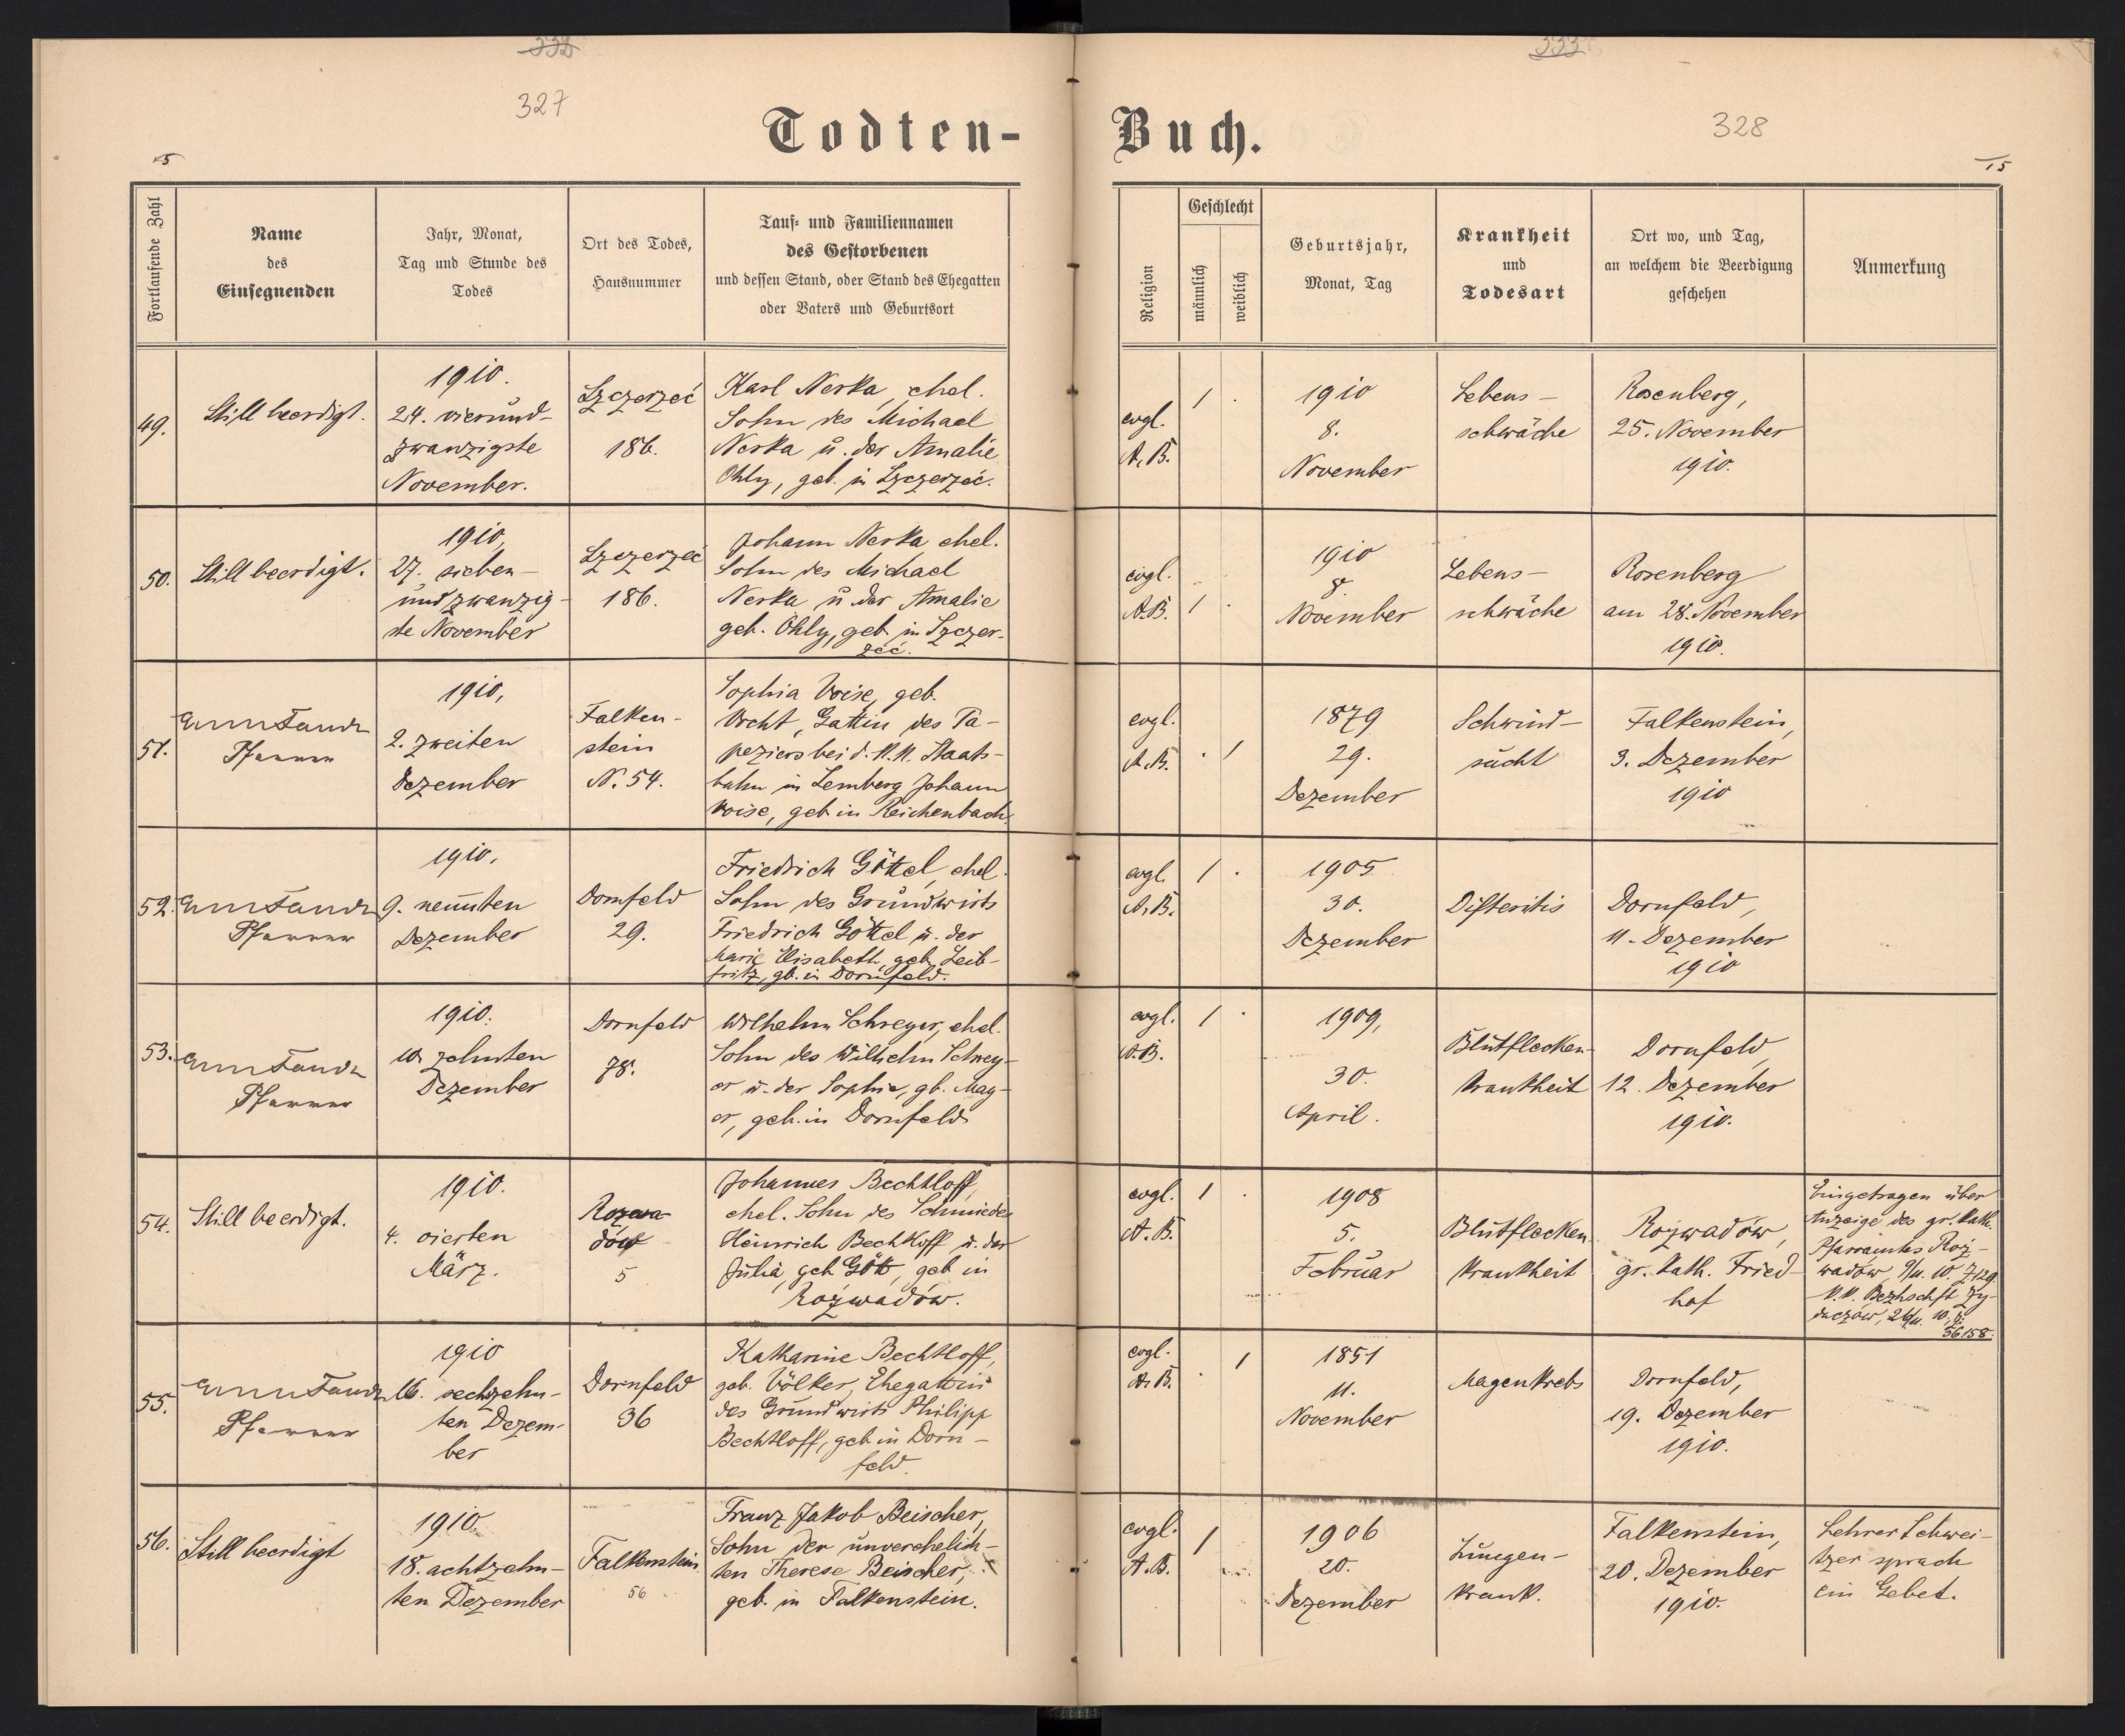 332
333
327
328
Todten-Buch.
15
15
Fortlaufende Zahl
Name
des
Einsegnenden
Jahr, Monat,
Tag und Stunde des
Todes
Ort des Todes,
Hausnummer
Tauf- und Familiennamen
des Gestorbenen
und dessen Stand, oder Stand des Ehegatten
oder Vaters und Geburtsort
Religion
Geschlecht
männlich
weiblich
Geburtsjahr,
Monat, Tag
Krankheit
und
Todesart
Ort wo, und Tag,
an welchem die Beerdigung
geschehen
Anmerkung
49.
Still beerdigt.
1910.
24. vierund-
zwanzigste
November.
Szczerzeć
186.
Karl Nerka, ehel.
Sohn des Michael
Nerka u. der Amalie
Ohly, geb. in Szczerzeć.
evgl.
A.B.
1 .
1910
8.
November
Lebens-
schwäche
Rosenberg,
25. November
1910.
50.
Still beerdigt.
1910,
27. sieben-
undzwanzig-
ste November
Szczerzeć
186.
Johann Nerka ehel.
Sohn des Michael
Nerka u. der Amalie
geb. Ohly, geb. in Szczer-
zeć.
evgl.
A.B.
1 .
1910
8.
November
Lebens-
schwäche
Rosenberg
am 28. November
1910.
51.
Pfarrer
1910,
2. zweiten
Dezember
Falken-
stein
N. 54.
Sophia Voise, geb.
Gattin des Ta-
peziers bei d. k.k. Staats-
bahn in Lemberg Johann
Voise, geb in Reichenbach.
evgl.
A.B.
. 1
1879
29.
Dezember
Schwind-
sucht
Falkenstein,
3. Dezember
1910
52.
Pfarrer
1910,
9. neunten
Dezember
Dornfeld
29.
Friedrich Göttel, ehel.
Sohn des Grundwirts
Friedrich Göttel u. der
Marie Elisabeth, geb. Leib-
fritz, gb. in Dornfeld.
evgl.
A.B.
1 .
1905
30.
Dezember
Difteritis
Dornfeld,
11. Dezember
1910
53.
Pfarrer
1910.
10. zehnten
Dezember
Dornfeld
78.
Wilhelm Schreyer, ehel.
Sohn des Wilhelm Schrey-
er u. der Sophie, gb. May-
er, geb. in Dornfeld
evgl.
A.B.
1 .
1909,
30.
April.
Blutflecken-
krankheit
Dornfeld,
12. Dezember
1910.
54.
Still beerdigt.
1910.
4. vierten
März.
Rozwa-
dów
5
Johannes Bechtloff,
ehel. Sohn des Schmiedes
Heinrich Bechtloff u. der
Julia geb Gött, geb in
Rozwadów.
evgl.
A.B.
1 .
1908
5.
Februar
Blutflecken
krankheit
Rozwadów,
gr. kath. Fried-
hof
Eingetragen über
Anzeige des gr. kath.
Pfarramtes Roz-
wadów, 9/11. 10. Z 129.
k.k. Bezhschft Zy-
daczów, 26/11. 10,
56158.
55.
Pfarrer
1910
16. sechzehn-
ten Dezem-
ber
Dornfeld
36
Katharine Bechtloff,
geb. Völker, Ehegattin
des Grundwirts Philipp
Bechtloff, geb in Dorn-
feld.
evgl.
A.B.
. 1
1851
11.
November
Magenkrebs
Dornfeld,
19. Dezember
1910.
56.
Still beerdigt
1910.
18. achtzehn-
ten Dezember
Falkenstein
56
Franz Jakob Beischer,
Sohn der unverehelich-
ten Therese Beischer,
geb. in Falkenstein.
evgl.
A.B.
1
1906
20.
Dezember
Lungen-
krank.
Falkenstein,
20. Dezember
1910.
Lehrer Schwei-
tzer sprach
ein Gebet.